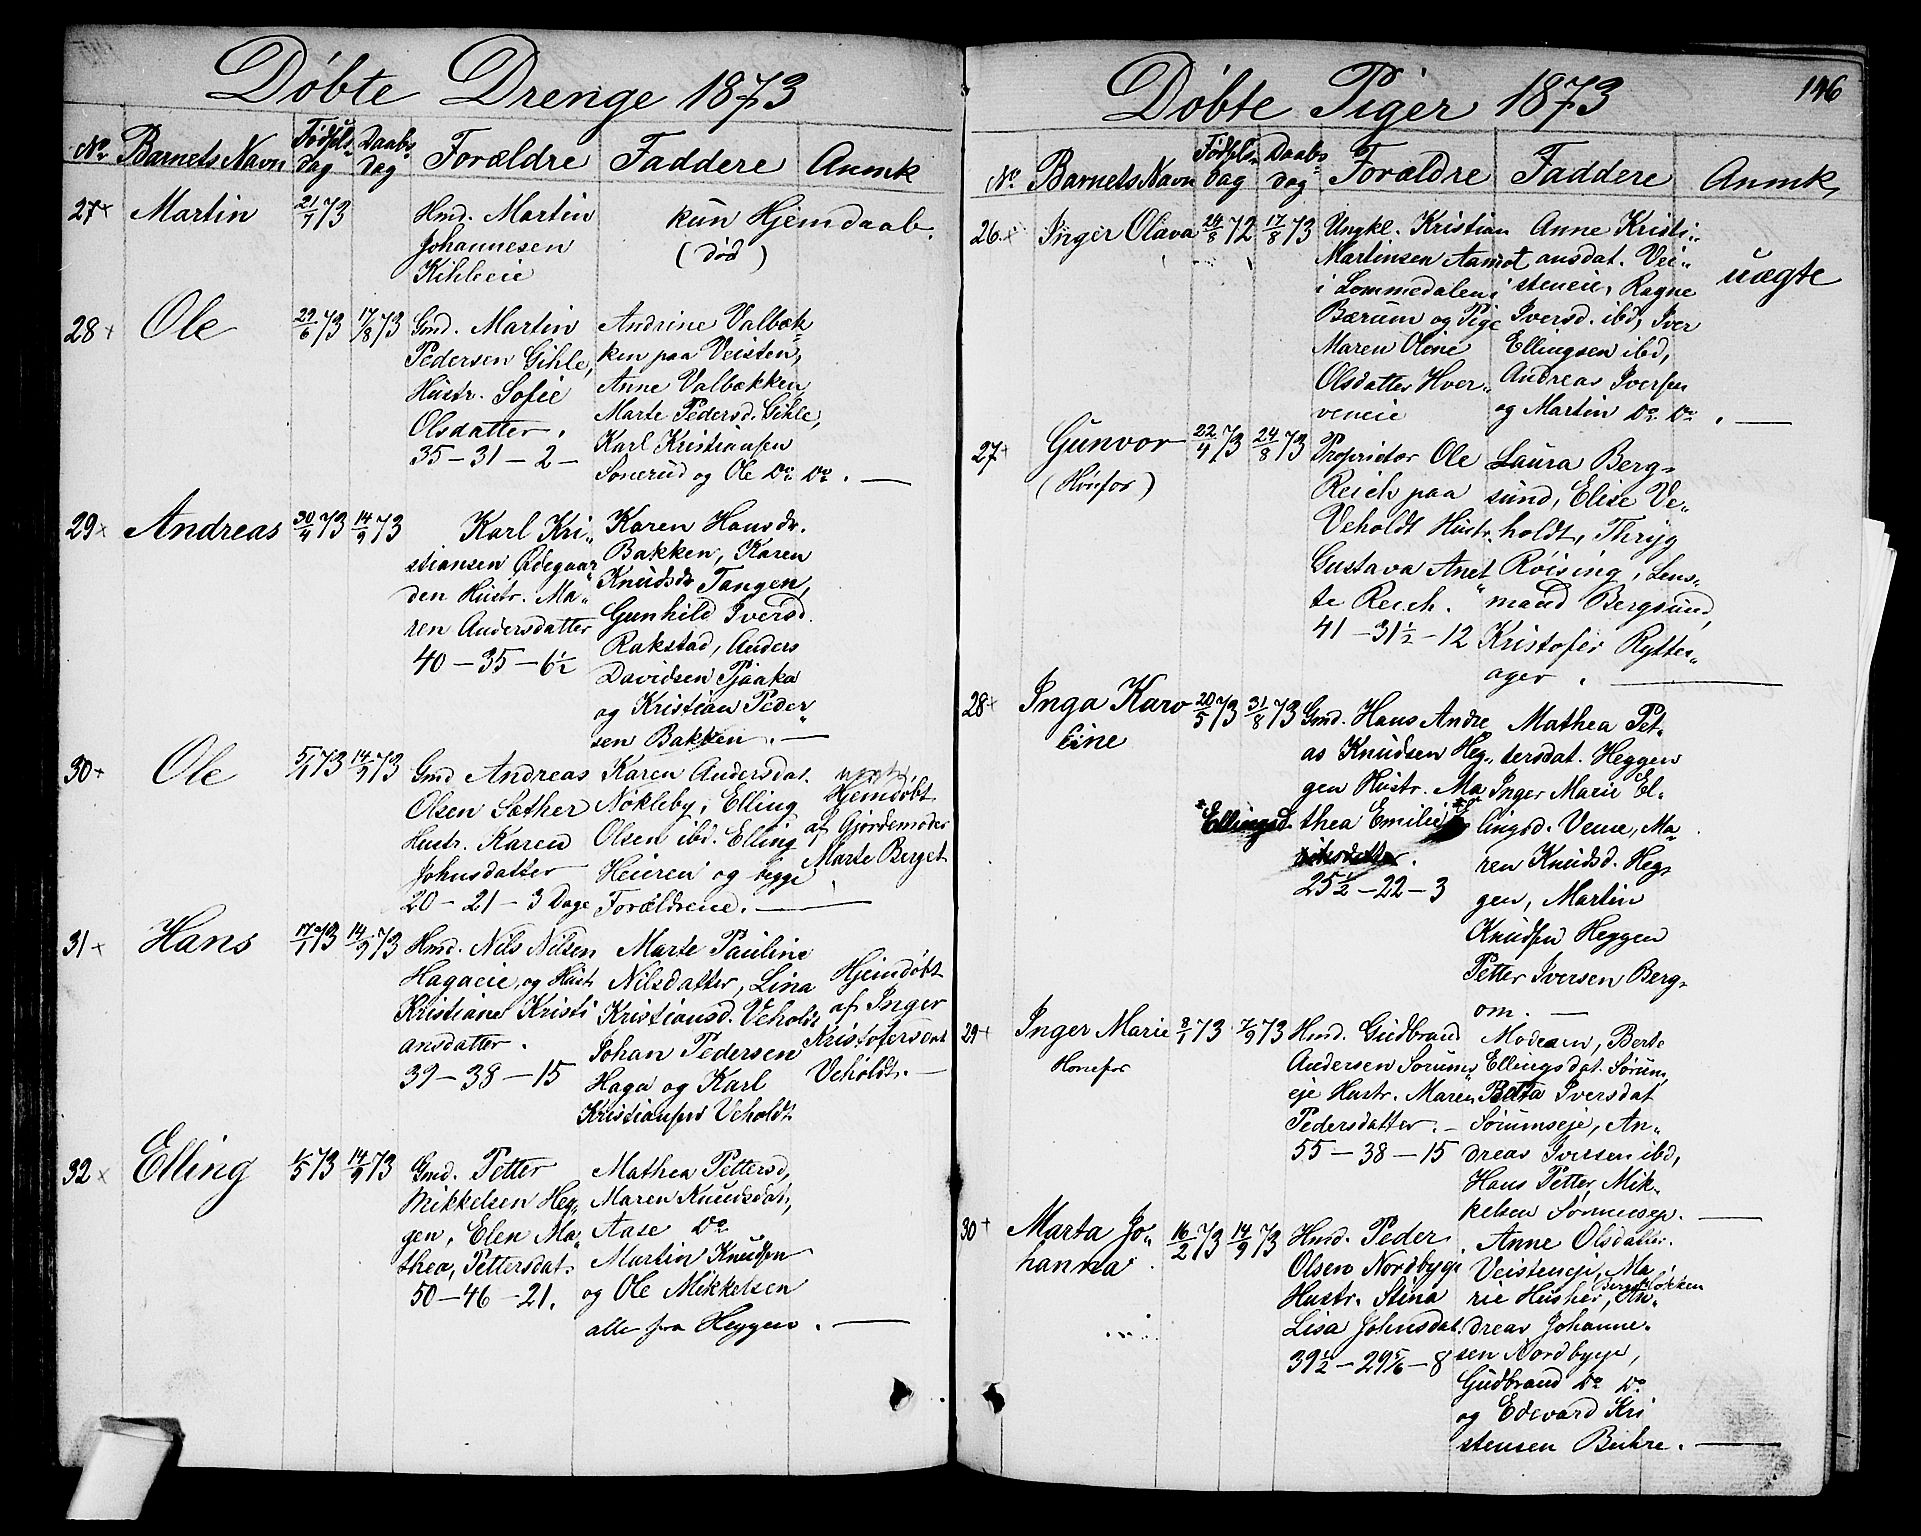 Døbte Drenge 1873
No. Barnets Navn Fødsels- dag Daabs- dag Forældre Faddere Anmk
27 Martin 21/7 73
Hmd. Martin
Johannesen
Kihleeie
kun Hjemdaab.
(død)
28 Ole 29/6 73 17/8 73
Gmd. Martin
Pedersen Gihle,
Hustr. Sofie
Olsdatter.
35 - 31 - 2 -
Andrine Valbæk-
ken paa Veisten,
Anne Valbækken
Marte Pedersd. Gihle,
Karl Kristiansen
Sonerud og Ole Do. Do. —
29 Andreas 30/4 73 14/9 73
Karl Kri-
stiansen Ødegaar-
den Hustr. Ma-
ren Andersdatter
40 - 35 - 6½
Karen Hansdr.
Bakken, Karen
Knudsdr Tangen,
Gunhild Iversd.
Rakstad, Anders
Davidsen Pjaaka
og Kristian Peder-
sen Bakken. —
30 Ole 5/4 73 14/9 73
Gmd Andreas
Olsen Sæther
Hustr. Karen
Johnsdatter
20 - 21 - 3 Dage
Karen Andersdat.
Nøkleby, Elling
Olsen ibd. Elling
Heieren og begge
Forældrene. —
Hjemdøbt
af Gjordemoder
Marte Berget
31 Hans 17/1 73 14/9 73
Hmd. Nils Nilsen
Hagaeie, og Hust
Kristiane Kristi
ansdatter.
39 - 38 - 15
Marte Pauline
Nilsdatter, Lina
Kristiansd. Veholdt
Johan Pedersen
Haga og Karl
Kristiansen Veholdt
Hjemdøbt
af Inger
Kristofersdat
Veholdt. —
32 Elling 1/5 73 14/9 73
Gmd. Petter
Mikkelsen Heg-
gen, Elen Ma-
thea, Pettersdat.
50 - 46 - 21.
Mathea Pettersd,
Maren Knudsdat,
Aase Do.
Martin Knudsen
og Ole Mikkelsen
alle fra Heggen. —
Døbte Piger 1873
146
No Barnets Navn Fødsels- dag Daabs- dag Forældre Faddere Anmk,
26 Inger Olava 24/8 72 17/8 73
Ungkl. Kristian
Martinsen Aamot
i Lommedalen i
Bærum og Pige
Maren Oline
Olsdatter Hver-
veneie
Anne Kristi-
ansdat. Vei-
steneie, Ragne
Iversd. ibd, Iver
Ellingsen ibd,
Andreas Iversen
og Martin Do. Do. —
uægte
27 Gunvor 22/4 73 24/8 73
(Hønefos)
Proprietær Ole
Reich paa
Veholdt Hustr.
Gustava Anet-
te Reich.
41 - 31½ - 12
Laura Berg-
sund, Elise Ve-
holdt, Thryg
Røising, Lens-
mand Bergsund,
Kristofer Rytter-
ager. —
28 Inga Karo 20/5 73 31/8 73
line
Gmd. Hans Andre
as Knudsen Heg-
gen Hustr. Ma
*Ellingsd. thea Emilie*
25½ - 22 - 3
Mathea Pet-
tersdat. Heggen
Inger Marie El-
lingsd. Veme, Ma-
ren Knudsd. Heg-
gen, Martin
Knudsen Heggen
Petter Iversen Berg-
om. —
29 Inger Marie 8/1 73 7/9 73
Honefos
Hmd. Gudbrand
Andersen Sørums-
eje Hustr. Maren
Pedersdatter. -
55 - 38 - 15
Moderen, Berte
Ellingsdat. Sørum,
Iversdat
Sørumseje, An-
dreas Iversen ibd,
Hans Petter Mik-
kelsen Sørumseje. —
30 Marta Jo- 16/2 73 14/9 73
hanna
Hmd. Peder
Olsen Nordbyeje
Hustr. Stina
Lisa Johnsdat.
39½ - 29 5/6 - 8
Anne Olsdatter.
Veisteneje, Ma
rie Husher, An-
dreas Johanne-
sen Nordbyeje,
Gudbrand Do. Do
og Edevard Kri
stensen Buhre. —